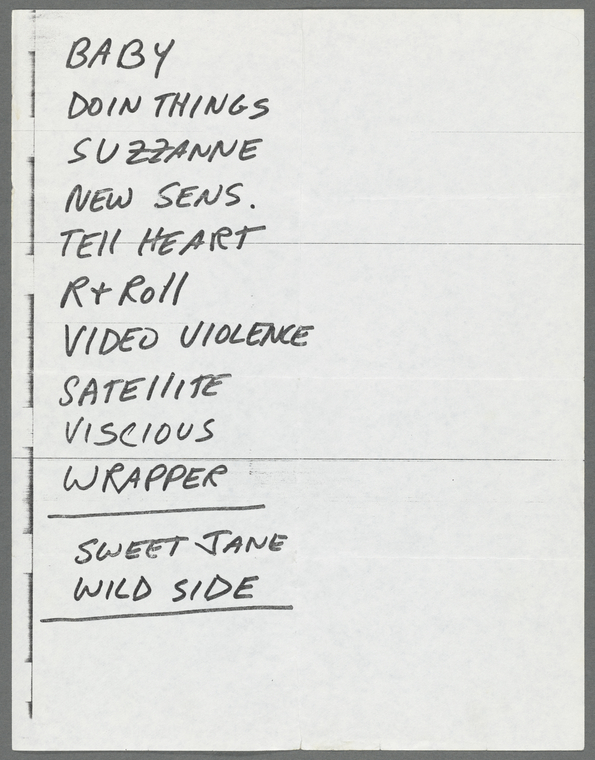 BABY
DOIN THINGS
SUZZANNE
NEW SENS.
TEll HEART
R+Roll
VIDEO VIOLENCE
SATEllITE
VISCIOUS
WRAPPER
SWEET JANE
WILD SIDE